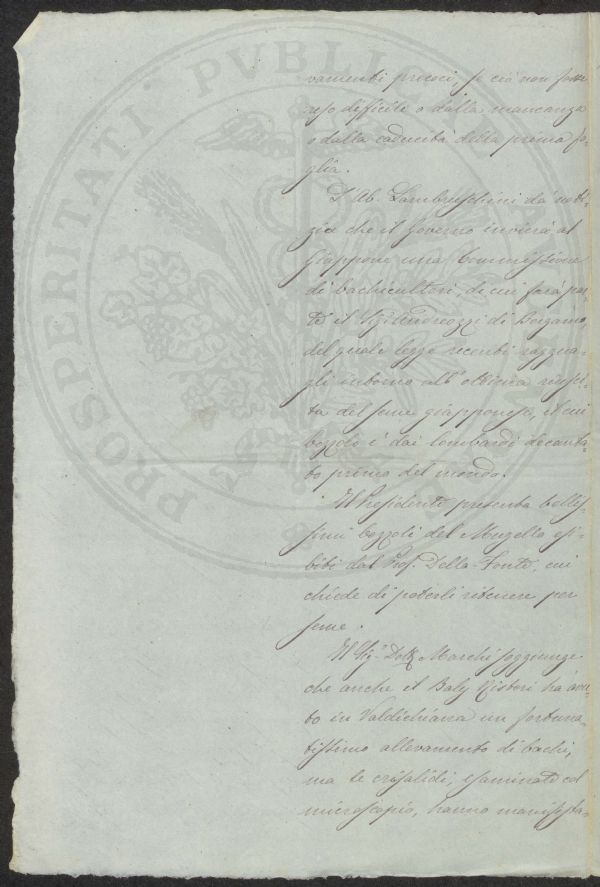 vamenti precoci, se ciò non fosse
reso difficile o dalla mancanza
o dalla caducità della prima fo-
glia.
L'Ab. Lambruschini dà noti-
zia che il Governo invierà al
Giappone una Commissione
di bachicultori, di cui farà par-
te il Sig. di Bergamo,
del quale legge recenti raggua-
gli intorno all'ottima riusci-
ta del seme giapponese, il cui
bozzolo è dai lombardi decanta-
to primo del mondo.
Il Presidente presenta bellis-
simi bozzoli del Mugello esi-
biti dal Prof. Della-Fonte, cui
chiede di poterli ritenere per
seme.
Il Sig. Dott. Marchi soggiunge
che anche il Balì Ristori ha avu-
to in Valdichiana un fortuna-
tissimo allevamento di bachi,
ma le crisalidi, esaminate col
microscopio, hanno manifesta-
PROSPERITATI PVBLICAE